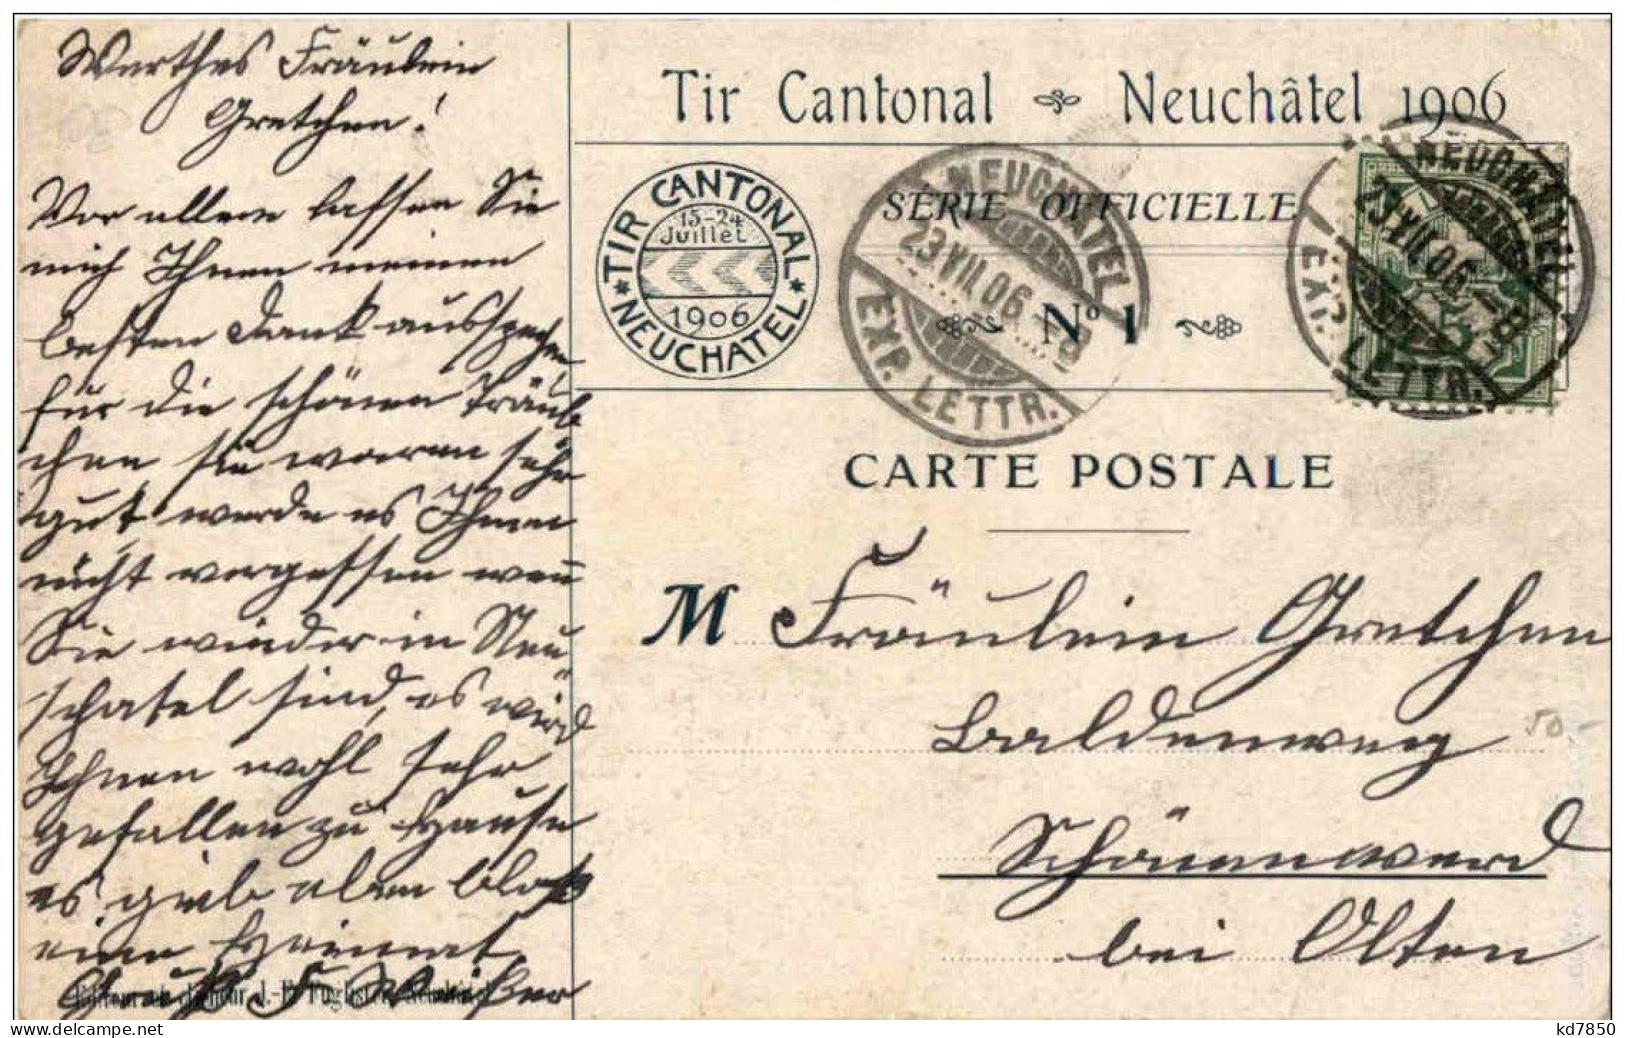 Werthes Fräulein
Gretchen!
Vor allem lassen Sie
mich Ihnen meinen
besten Dank aussprechen
für die schönen Träub
chen, sie waren sehr
gut, werde es Ihnen
nicht vergessen wenn
Sie wieder in Neu
schatel sind, es wird
Ihnen wohl sehr
gefallen zu Hause
es gieb aber bloß
eine Heimat
Gruß
Tir Cantonal Neuchâtel 1906
TIR CANTONAL
15-24
Juillet
1906
NEUCHATEL
SÉRIE OFFICIELLE
No 1
NEUCHATEL
23.VII.06.-8
EXP. LETTR.
NEUCHATEL
23.VII.06.-8
EXP. LETTR.
CARTE POSTALE
M Fräulein Gretchen
Baldenweg
Schönenwerd
bei Olten
50.-
delcampe.net
kd7850